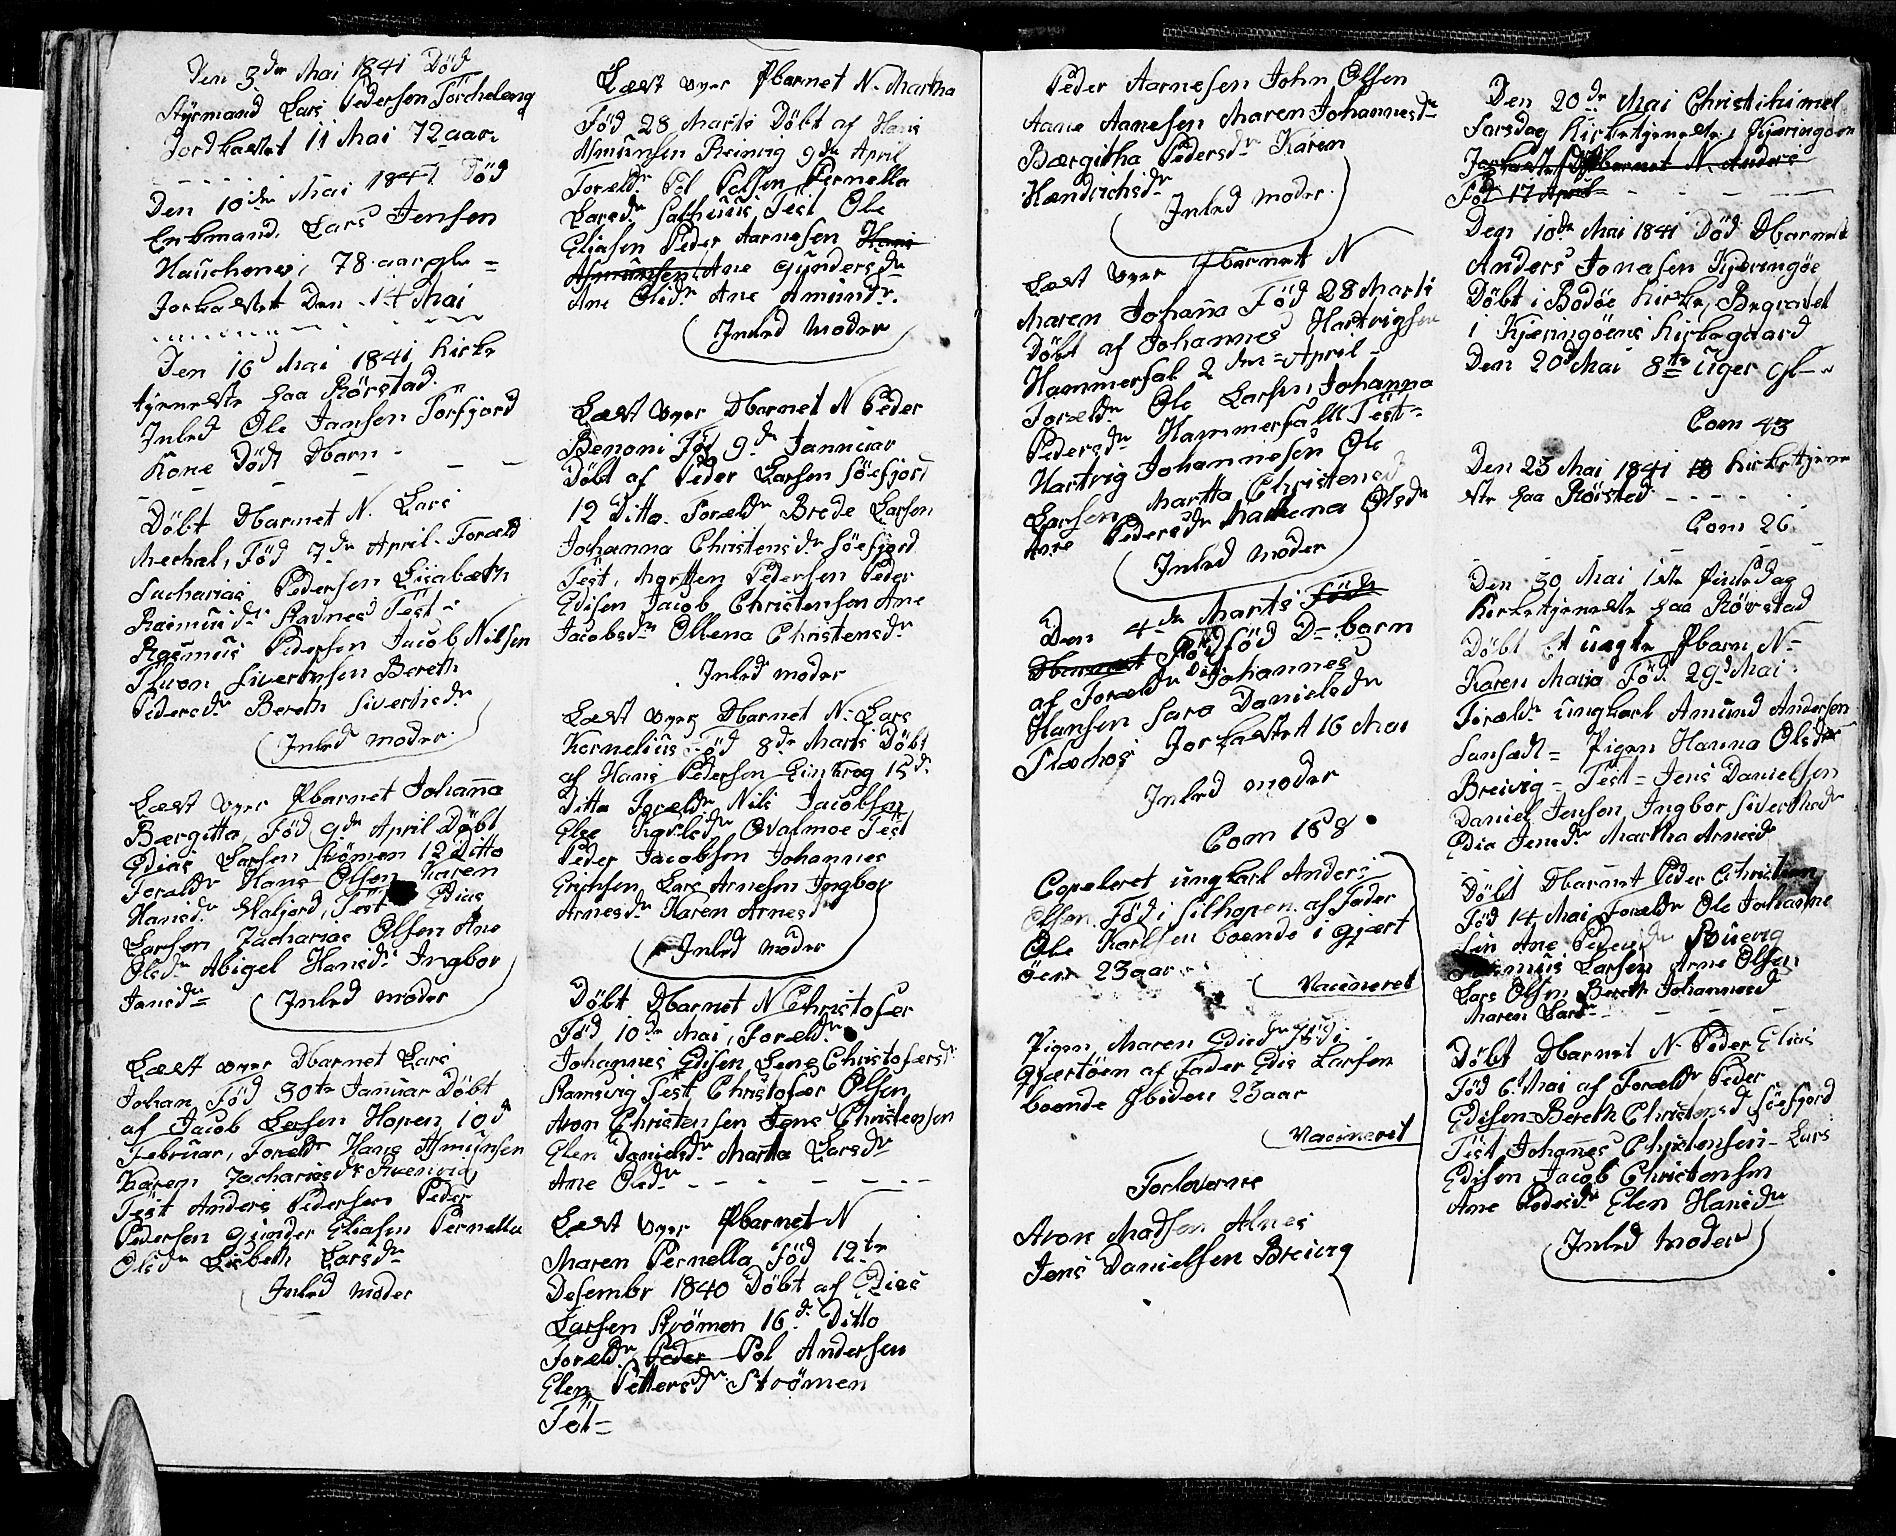 Den 3de Mai 1841 Död
Styrmand Lars Pedersen Torcheleng
Jordkastet 11 Mai 72 aar
Den 10de Mai 1841 Död
Enkmand Lars Jensen
Hauchenes, 78 aar gl =
Jorkastet Den 14 Mai
Den 16 Mai 1841 Kirke
tjeneste paa Rörstad.
Inled Ole Jansen Torfjord
Kone Dödt Dbarn -
Döbt Dbarnet N. Lars
Mechal, Föd 7de April. Foræld
Sacharias Pedersen Lisabeth
Rasmusdr Stavnes Test =
Rasmus Pedersen Jacob Nilsen
Sivertsen Bereth
Pedersdr Bereth Sivertsdr
Inled moder
Læst over Pbarnet Johana
Bærgitta, Föd 9de April Döbt
Edias Larsen Strömen 12 Ditto
Foreldr Hans Olsen Karen
Hansdr Valjord, Test Edias
Larsen Zacharias Olsen Ane
Olsdr Abigel Hansdr Ingbor
Jansdr Inled moder
Læst over Dbarnet Lars
Johan Föd 30te Januar Döbt
af Jacob Larsen Hopen 10d
Februar, Foreldr Hans Asmunsen
Karen Zachariasdr
Test Anders Pedersen Peder
Pedersen Gunder Eliasen Pernella
Olsdr Lisbeth Larsdr
Inled moder
Læst over Pbarnet N. Martha
Föd 28 Marts Döbt af Hans
Asmunsen Reinvig 9de April
Foreldr Pol Polsen Pernella
Larsdr Test Ole
Eliasen Peder Aarnesen Hans
Asmunsen Ane Gundersdr
Ane Olsdr Ane Amundr.
Inled moder
Læst over Dbarnet N Peder
Benoni Föd 9d Januar
Döbt af Peder Larsen Söefjord
12 Ditto. Foræld Brede Larsen
Johanna Christensdr Söefjord
Test, Martten Pedersen Peder
Edisen Jacob Christensen Ane
Jacobsdr Ollena Christensdr
Inled moder
Læst over Dbarnet N. Lars
Kornelius Föd 8de Marts Döbt
af Hans Pedersen 15d
Ditto Foreldr Nils Jacobsen
Else Test
Peder Jacobsen Johannes
Erichsen Lars Arnesen Ingbor
Arnesdr Karen Arnesd
Inled moder
Döbt Dbarnet N Christofer
Föd 10de Mai, Foreldr
Johannes Edisen Lene Christofersd
Ramsvig Test Christofer Olsen
Aron Christensen Jens Christensen
Elen Danielsdr Martta Larsdr
Ane Olsdr
Læst over Pbarnet N
Maren Pernella Föd 12te
Desembr 1840 Döbt af Edias
Larsen Strömen 16d Ditto
Foreldr Peder Pol Andersen
Elen Pettersdr Strömen
Test=
Peder Aarnesen John Olsen
Aane Aanesen Maren Johannesdr
Bærgitha Pedersdr Karen
Hændrichsdr
Inled moder
Læst over Pbarnet N
Maren Johana Föd 28 Marts
Döbt af Johannes Hartvigsen
Hammerfal 2den April -
Foreldr Ole Larsen Johanna
Pedersdr Hammerfall Test=
Hartvig Johannesen Ole
Larsen Martta Christensd
Ane Pedersdr Marthena Olsdr
Inled moder
Den 4de Marts Föd
Dbarnet Dödföd D=barn
af Foreldr Johannes
Hansen Sara Danielsdr
Jorkastet 16 Mai
Inled moder
Com 168
Copuleret ungkarl Anders
Olsen Föd i Silhopen af Fader
Ole Karlsen boende i Gjært
öen 23 aar
Vacineret
Pigen Maren Edisd Föd i
Gjærtöen af Fader Edis Larsen
boende ibiden 23 aar
Vacineret
Forloverne
Aron Madsen Alnes
Jens Danielsen Breivig
Den 20de Mai Christihimel
farsdag Kirketjeneste i Kjæringöen
Jorkastet Dbarnet N. Anders
Föd 17 April
Den 10de Mai 1841 Död Dbarnet
Anders Jonasen Kjæringöe
Döbt i Bodöe Kirke, Begravet
i Kjæringöens Kirkegaard
Den 20d Mai 8te Uger gl.
Com 43
Den 23 Mai 1841 Kirketjene
ste paa Rörsted
Com 26
Den 30 Mai 1ste Pinsedag
Kirketjeneste paa Rörstad
Döbt Et uægte Pbarn N=
Karen Maria Föd 29d Mai
Foreldr Ungkarl Amund Andersen
Sansæt= Pigen Hanna Olsdr
Breivig = Test = Jens Danielsen
Daniel Jensen Ingbor Sivertsdr
Edia Jensdr Martha Arnesd
Döbt Dbarnet Peder Christian
Föd 14 Mai Foreldr Ole Johanne
sen Ane Pedersdr
Larsen Arne Olsen
Lars Olsen Bereth Johannesd
Maren Larsdr
Döbt Dbarnet N. Peder Elias
Föd 6t Mai af Foreldr Peder
Edisen Bereth Christensd Söefjord
Test Johanes Christensen Lars
Edisen Jacob Christensen
Ane Pedersdr Elen Hansdr
Inled moder